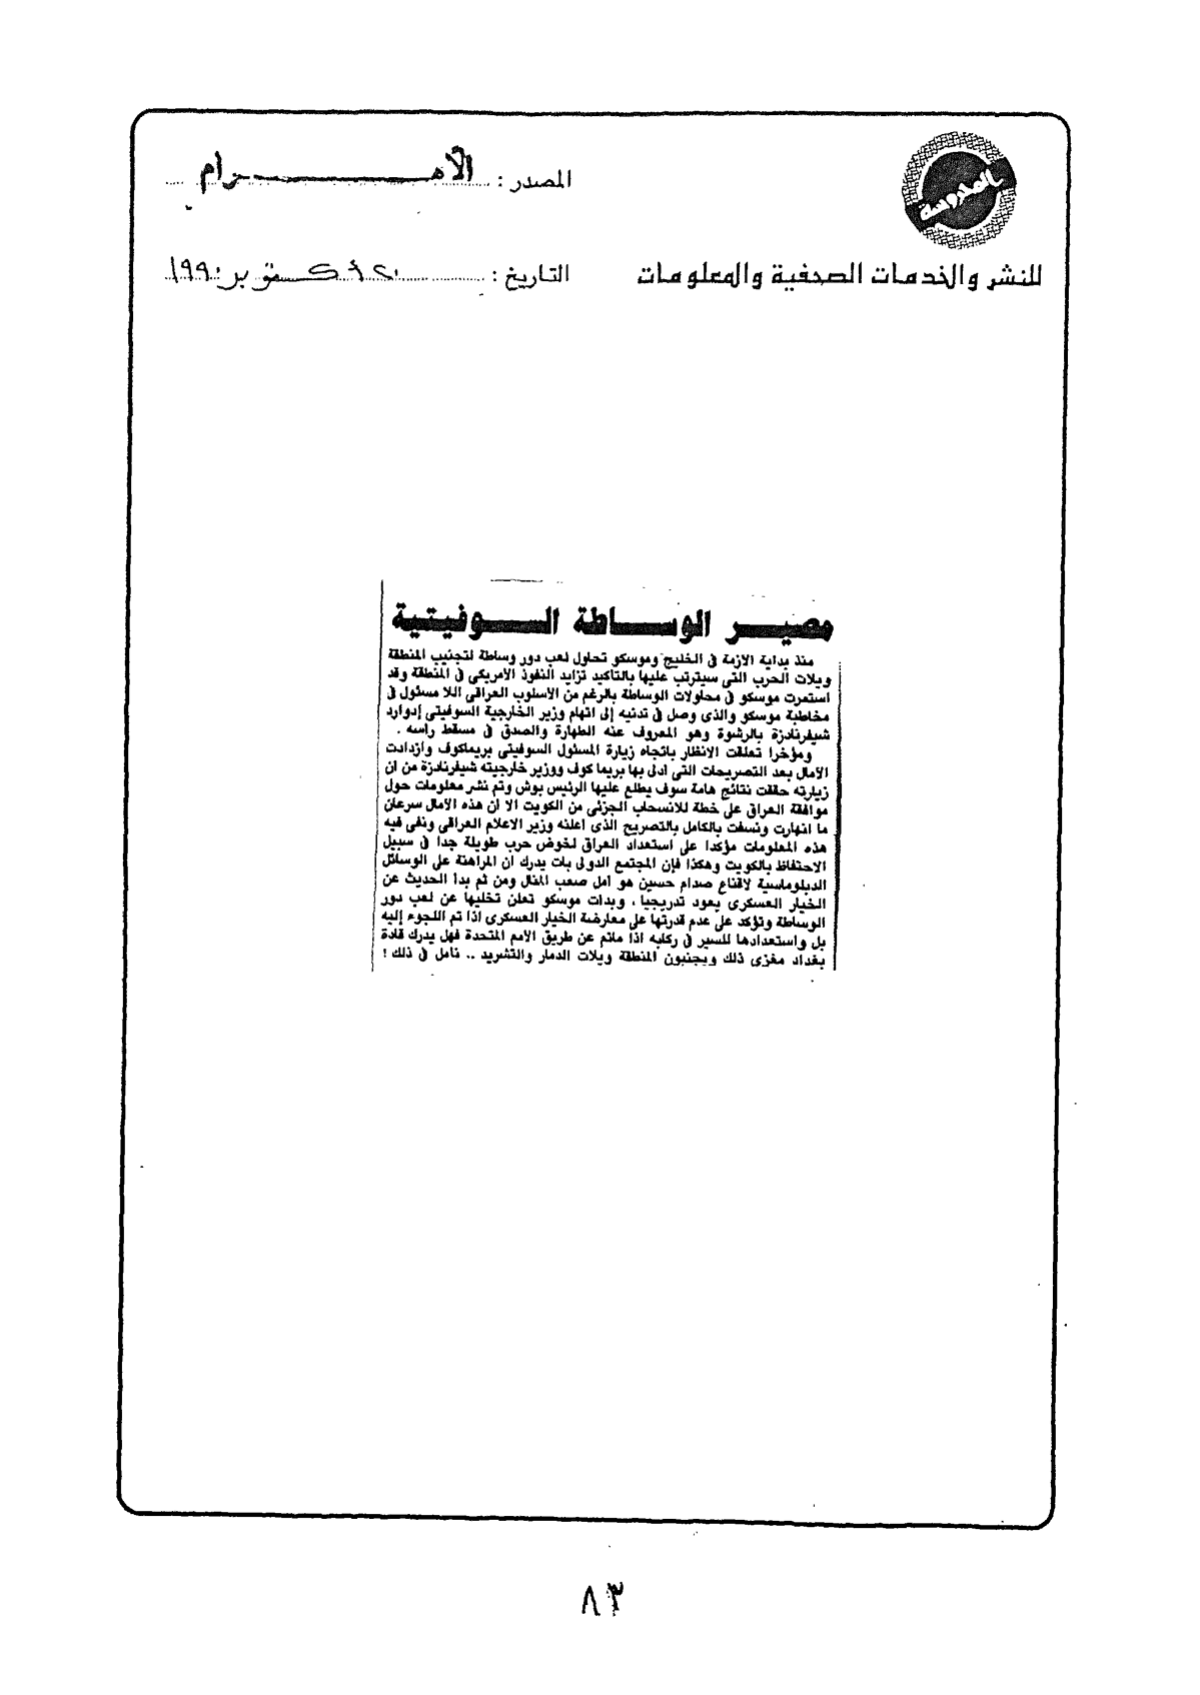 المحروسة
للنشر والخدمات الصحفية والمعلومات
المصدر : الأهــــرام
التاريخ : ٢٠ أكتوبر ١٩٩٠
مصير الوساطة السوفيتية
منذ بداية الازمة فى الخليج وموسكو تحاول لعب دور وساطة لتجنيب المنطقة
ويلات الحرب التى سيترتب عليها بالتأكيد تزايد النفوذ الأمريكى فى المنطقة وقد
استمرت موسكو فى محاولات الوساطة بالرغم من الاسلوب العراقى اللا مسئول فى
مخاطبة موسكو والذى وصل فى تدنيه إلى اتهام وزير الخارجية السوفيتى إدوارد
شيفرنادزة بالرشوة وهو المعروف عنه الطهارة والصدق فى مسقط راسه .
ومؤخرا تعلقت الانظار باتجاه زيارة المسئول السوفيتى بريماكوف وازدادت
الآمال بعد التصريحات التى ادلى بها بريما كوف ووزير خارجيته شيفرنادزة من ان
زيارته حققت نتائج هامة سوف يطلع عليها الرئيس بوش وتم نشر معلومات حول
موافقة العراق على خطة للانسحاب الجزئى من الكويت الا ان هذه الآمال سرعان
ما انهارت ونسفت بالكامل بالتصريح الذى اعلنه وزير الاعلام العراقى ونفى فيه
هذه المعلومات مؤكدا على استعداد العراق لخوض حرب طويلة جدا فى سبيل
الاحتفاظ بالكويت وهكذا فإن المجتمع الدولى بات يدرك ان المراهنة على الوسائل
الدبلوماسية لاقناع صدام حسين هو امل صعب المنال ومن ثم بدأ الحديث عن
الخيار العسكرى يعود تدريجيا ، وبدات موسكو تعلن تخليها عن لعب دور
الوساطة وتؤكد على عدم قدرتها على معارضة الخيار العسكرى اذا تم اللجوء إليه
بل واستعدادها للسير فى ركابه اذا ماتم عن طريق الامم المتحدة فهل يدرك قادة
بغداد مغزى ذلك ويجنبون المنطقة ويلات الدمار والتشريد .. نامل فى ذلك !
٨٣